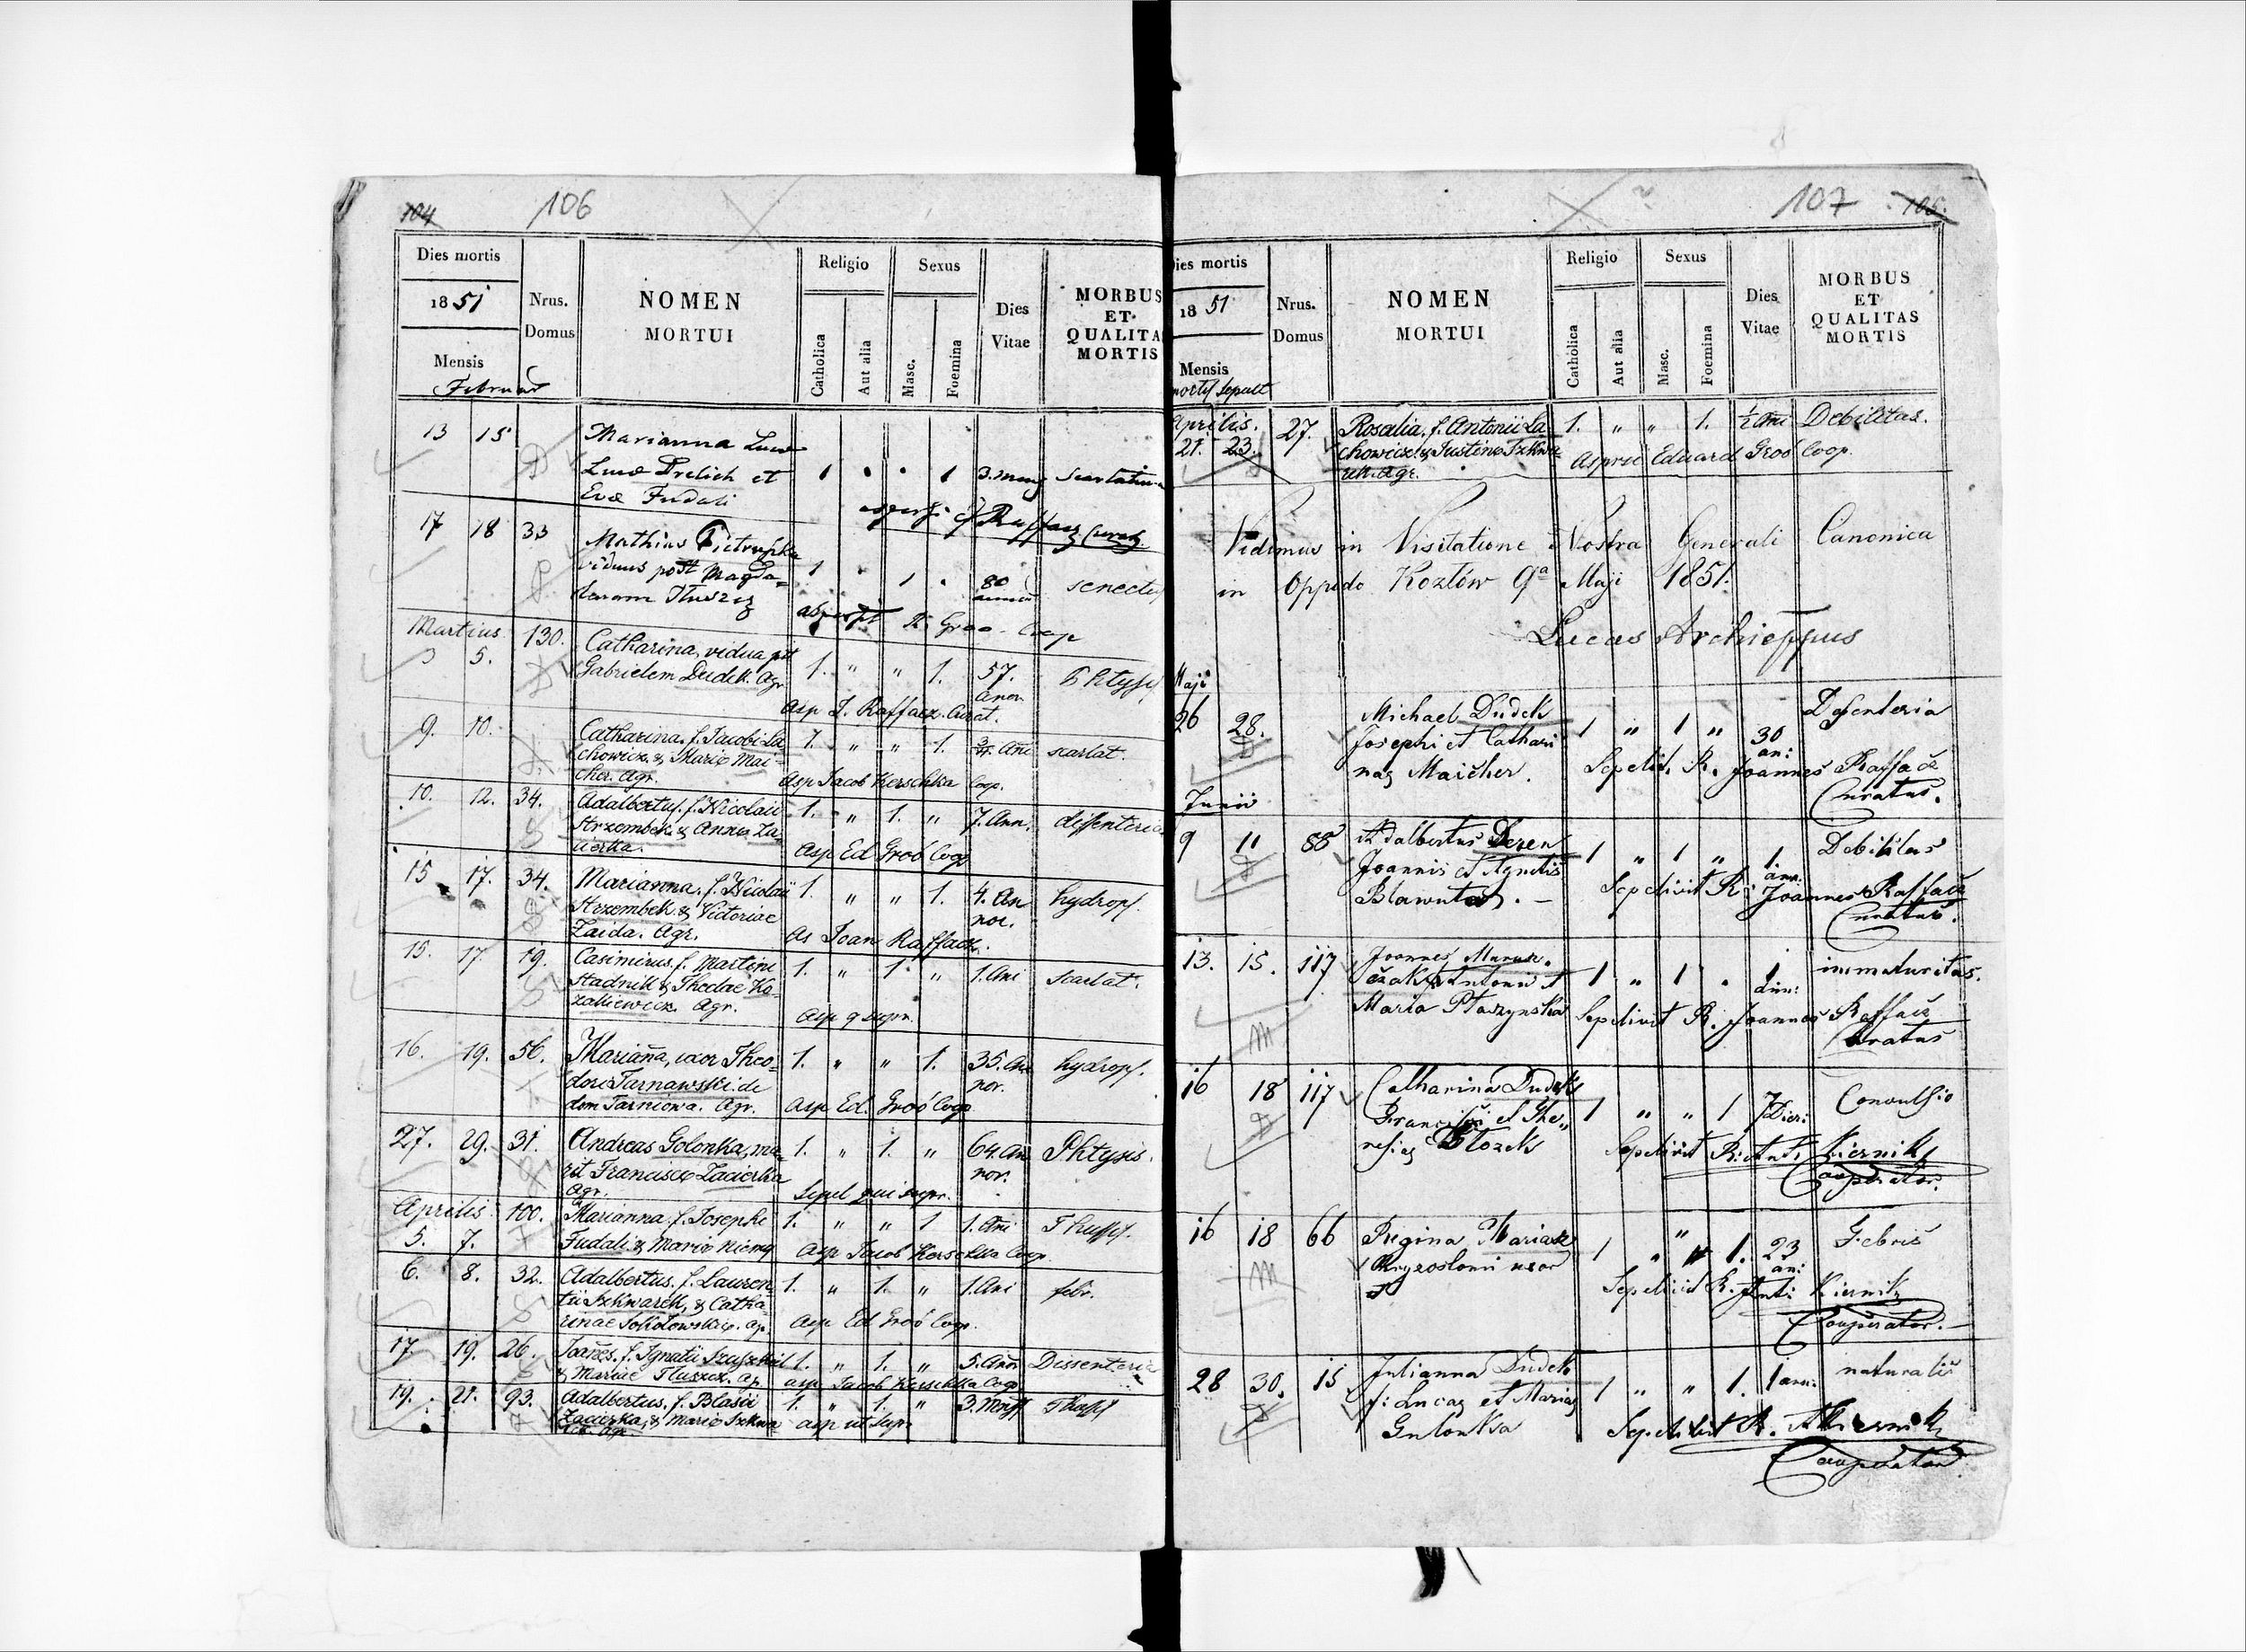 104 106
Dies mortis
1851
Mensis
Februar
Nrus.
Domus
NOMEN
MORTUI
Religio
Catholica
Aut alia
Sexus
Masc.
Foemina
Dies
Vitae
MORBUS
ET
QUALITA
MORTIS
13 15 Marianna
Lucæ Drelich et 1 1 3. mens
Evæ Fudali
17 18 33 Mathias Pietruszka
viduus post Magda= 1 1 80 senectus
lenam Tłuszcz
Martius. 130. Catharina, vidua pst
3 5. Gabrielem Dudek. Agr 1. " " 1. 57.
anor.
Asp J. Raffacz. Curat.
9. 10. Catharina, f. Jacobi La 1. " " 1. 3/4 Ani scarlat.
chowicz & Mariæ Mai-
cher. Agr. Asp Jacob Kerschka Coop.
10. 12. 34. Adalbertus, f. Nicolai 1. " 1. " 7. Ann. dissenteria
Strzembek & Annæ Za
cierka. Asp Ed Groó Coop
15 17. 34. Marianna, f. Nicolai 1. " " 1. 4. An hydrops.
Strzembek & Victoriae nor.
Zaida. Agr. As Joan Raffacz.
15. 17 19. Casimirus, f. Martini 1. " 1 " 1. Ani scarlat.
Stadnik & Theclae Ko-
zakiewicz. Agr. Asp q supr.
16. 19. 56. Mariana, uxor Theo= 1. " " 1. 35. An hydrops.
dori Tarnawski de nor.
dom Tarniowa. Agr. Asp Ed. Groó Coop
27. 29. 31. Andreas Golonka, ma- 1. " 1. " 64. An Phtysis.
rit Franciscæ Zacierka nor.
Agr. Sepel qui supr.
Aprilis 100. Marianna, f. Josephi 1. " " 1 1. Ani Thuss.
5. 7. Fudali & Mariæ Niemy Asp Jacob Kerschka Coop
6. 8. 32. Adalbertus. f. Lauren- 1. " 1. " 1. Ani febr.
tii Szkwarek, & Catha-
rinae Sokołowskiæ. Ag. Asp Ed Groó Coop.
17 19. 26. Joañes. f. Ignatii 1. " 1. " 5. Anor Dissenteria
& Mariae Tłuszcz. Ag. asp Jacob Kerschka Coop
19. 21. 93. Adalbertus. f. Blasii 1. " 1. " 3. Mens Thuss
Zacierka, & Mariæ Szkwa asp ut supr
rek. Agr.
107 105.
Dies mortis
1851
Mensis
mortis sepult
Nrus.
Domus
NOMEN
MORTUI
Religio
Catholica
Aut alia
Sexus
Masc.
Foemina
Dies
Vitae
MORBUS
ET
QUALITAS
MORTIS
Aprilis. 27. Rosalia, f. Antonii La 1. " " 1. ½ Ani Debilitas.
21. 23. chowicz & Justinæ Szkwa Eduard Groó Coop.
rek. Agr.
Vidimus in Visitatione Nostra Generali Canonica
in Oppido Kozłów 9a Maji 1851.
Lucas Archieppus
Maji
26 28. Michael Dudek 1 " 1 " 30 Desenteria
Josephi et Cathari an:
nae Maicher. Sepeliv. R. Joannes Raffacz
Curatus.
Junii
9 11 88 Adalbertus Deren 1 " 1 " 1. Debilitas
Joannis et Agnetis ann.
Sepelivit R: Joannes Raffacz
Curatus.
13. 15. 117 Joannes Marusz.
czak Antonii et 1 " 1 1 immaturitas.
Maria Płaszynska Sepelivit R. Joannes Raffacz
Curatus
16 18 117 Catharina Dudek
Francisci et The,, 1 " " 1 7 Dier: Convulsio
resiae Sepelivit R: Ant: Kiernik
Cooperator.
16 18 66 Regina Mariasz 1 " 1. 23 Febris
Chryzostomi uxor an:
Sepelivit R. Ant: Kiernik
Cooperator.
28 30. 15 Julianna Dudek 1 " " 1. 1 ann. naturalis
f: Lucae et Mariae
Gulonka Sepelivit R. A Kiernik
Cooperator